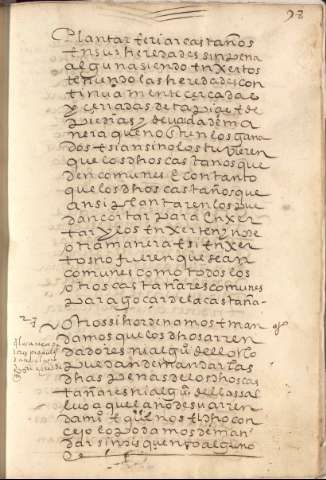 98
Plantar e criar castaños
en sus heredades sin pena
alguna siendo enxertos
teniendo las heredades con
tinuamente cercadas
y cerradas de tapia e de
piedras y devuada de ma
nera que no esten los gana
dos e si ansi no los tuvieren
que los dhos castanos que
den comunes E con tanto
que los dhos castaños que
ansi plantaren los pue
dan cortar para Enxer
tar y los Enxerten y no de
otra manera e si Enxer
tos no fueren que sean
comunes como todos los
otros castañares comunes
para gozar de la castaña
Otrossi hordenamos e man
damos que los dhos arren
dadores ni algu de llos lo
puedan demandar las
dhas penas de los dhos cas
tañares ni algu dellas sal
luo a quel año de su arren
dami e que nos el dho con
cejo lo podamos deman
dar sin dis quento alguno